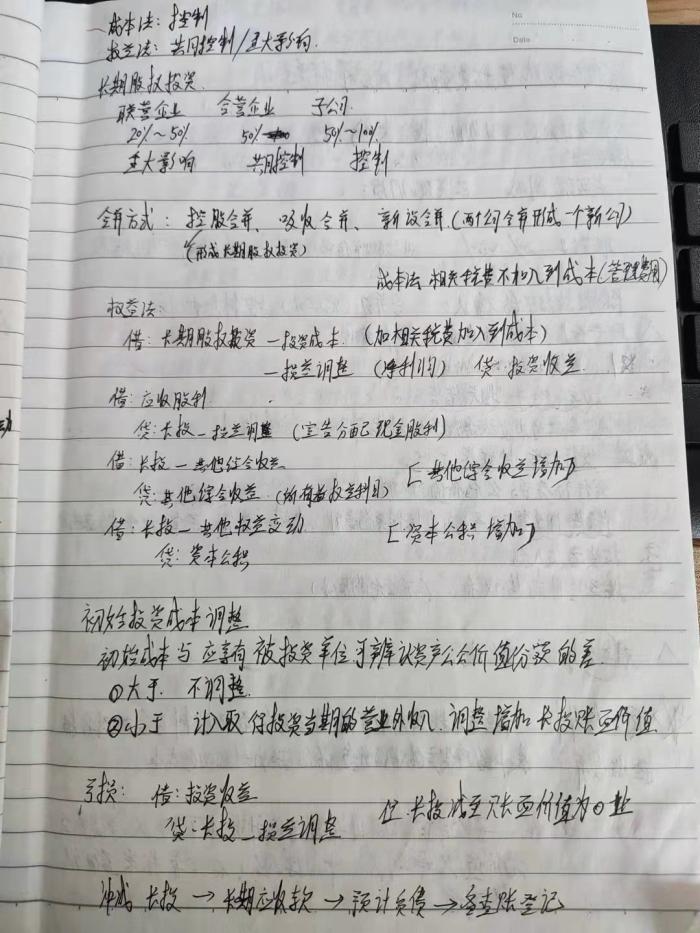 No
Date
成本法: 控制
权益法: 共同控制/重大影响.
长期股权投资.
联营企业 合营企业 子公司.
20%~50% 50% 50%~100%
重大影响 共同控制 控制
合并方式: 控股合并、吸收合并、新设合并(两个公司合并形成一个新公司)
(形成长期股权投资)
成本法 相关税费不加入到成本(管理费用)
权益法:
借: 长期股权投资 —投资成本. (加相关税费加入到成本)
—损益调整 (净利润) 贷: 投资收益
借: 应收股利
贷: 长投—损益调整 (宣告分配现金股利)
借: 长投—其他综合收益 [其他综合收益增加]
贷: 其他综合收益 (所有者权益科目)
借: 长投—其他权益变动 [资本公积增加]
贷: 资本公积
初始投资成本调整
初始成本与应享有被投资单位可辨认资产公允价值份额的差
①大于. 不调整.
②小于 计入取得投资当期的营业外收入. 调整增加长投账面价值
亏损: 借: 投资收益
贷: 长投—损益调整 长投减至账面价值为0止
冲减 长投 → 长期应收款 → 预计负债 → 备查账登记